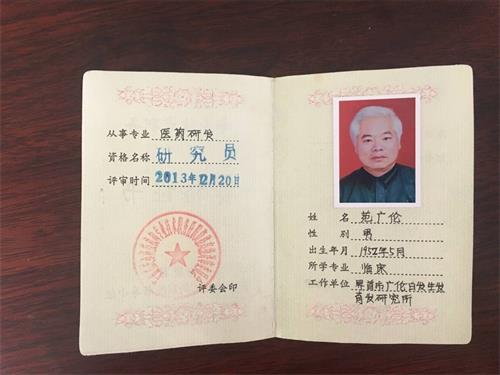 从事专业 医药研发
资格名称 研究员
评审时间 2013年12月20日
评委会印
姓名 范广伦
性别 男
出生年月 1952年5月
所学专业 临床
工作单位
育发研究所